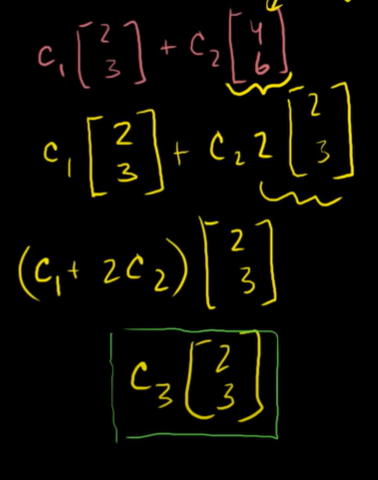 c₁ [2 3] + c₂ [4 6]
c₁ [2 3] + c₂ 2 [2 3]
(c₁ + 2c₂) [2 3]
c₃ [2 3]